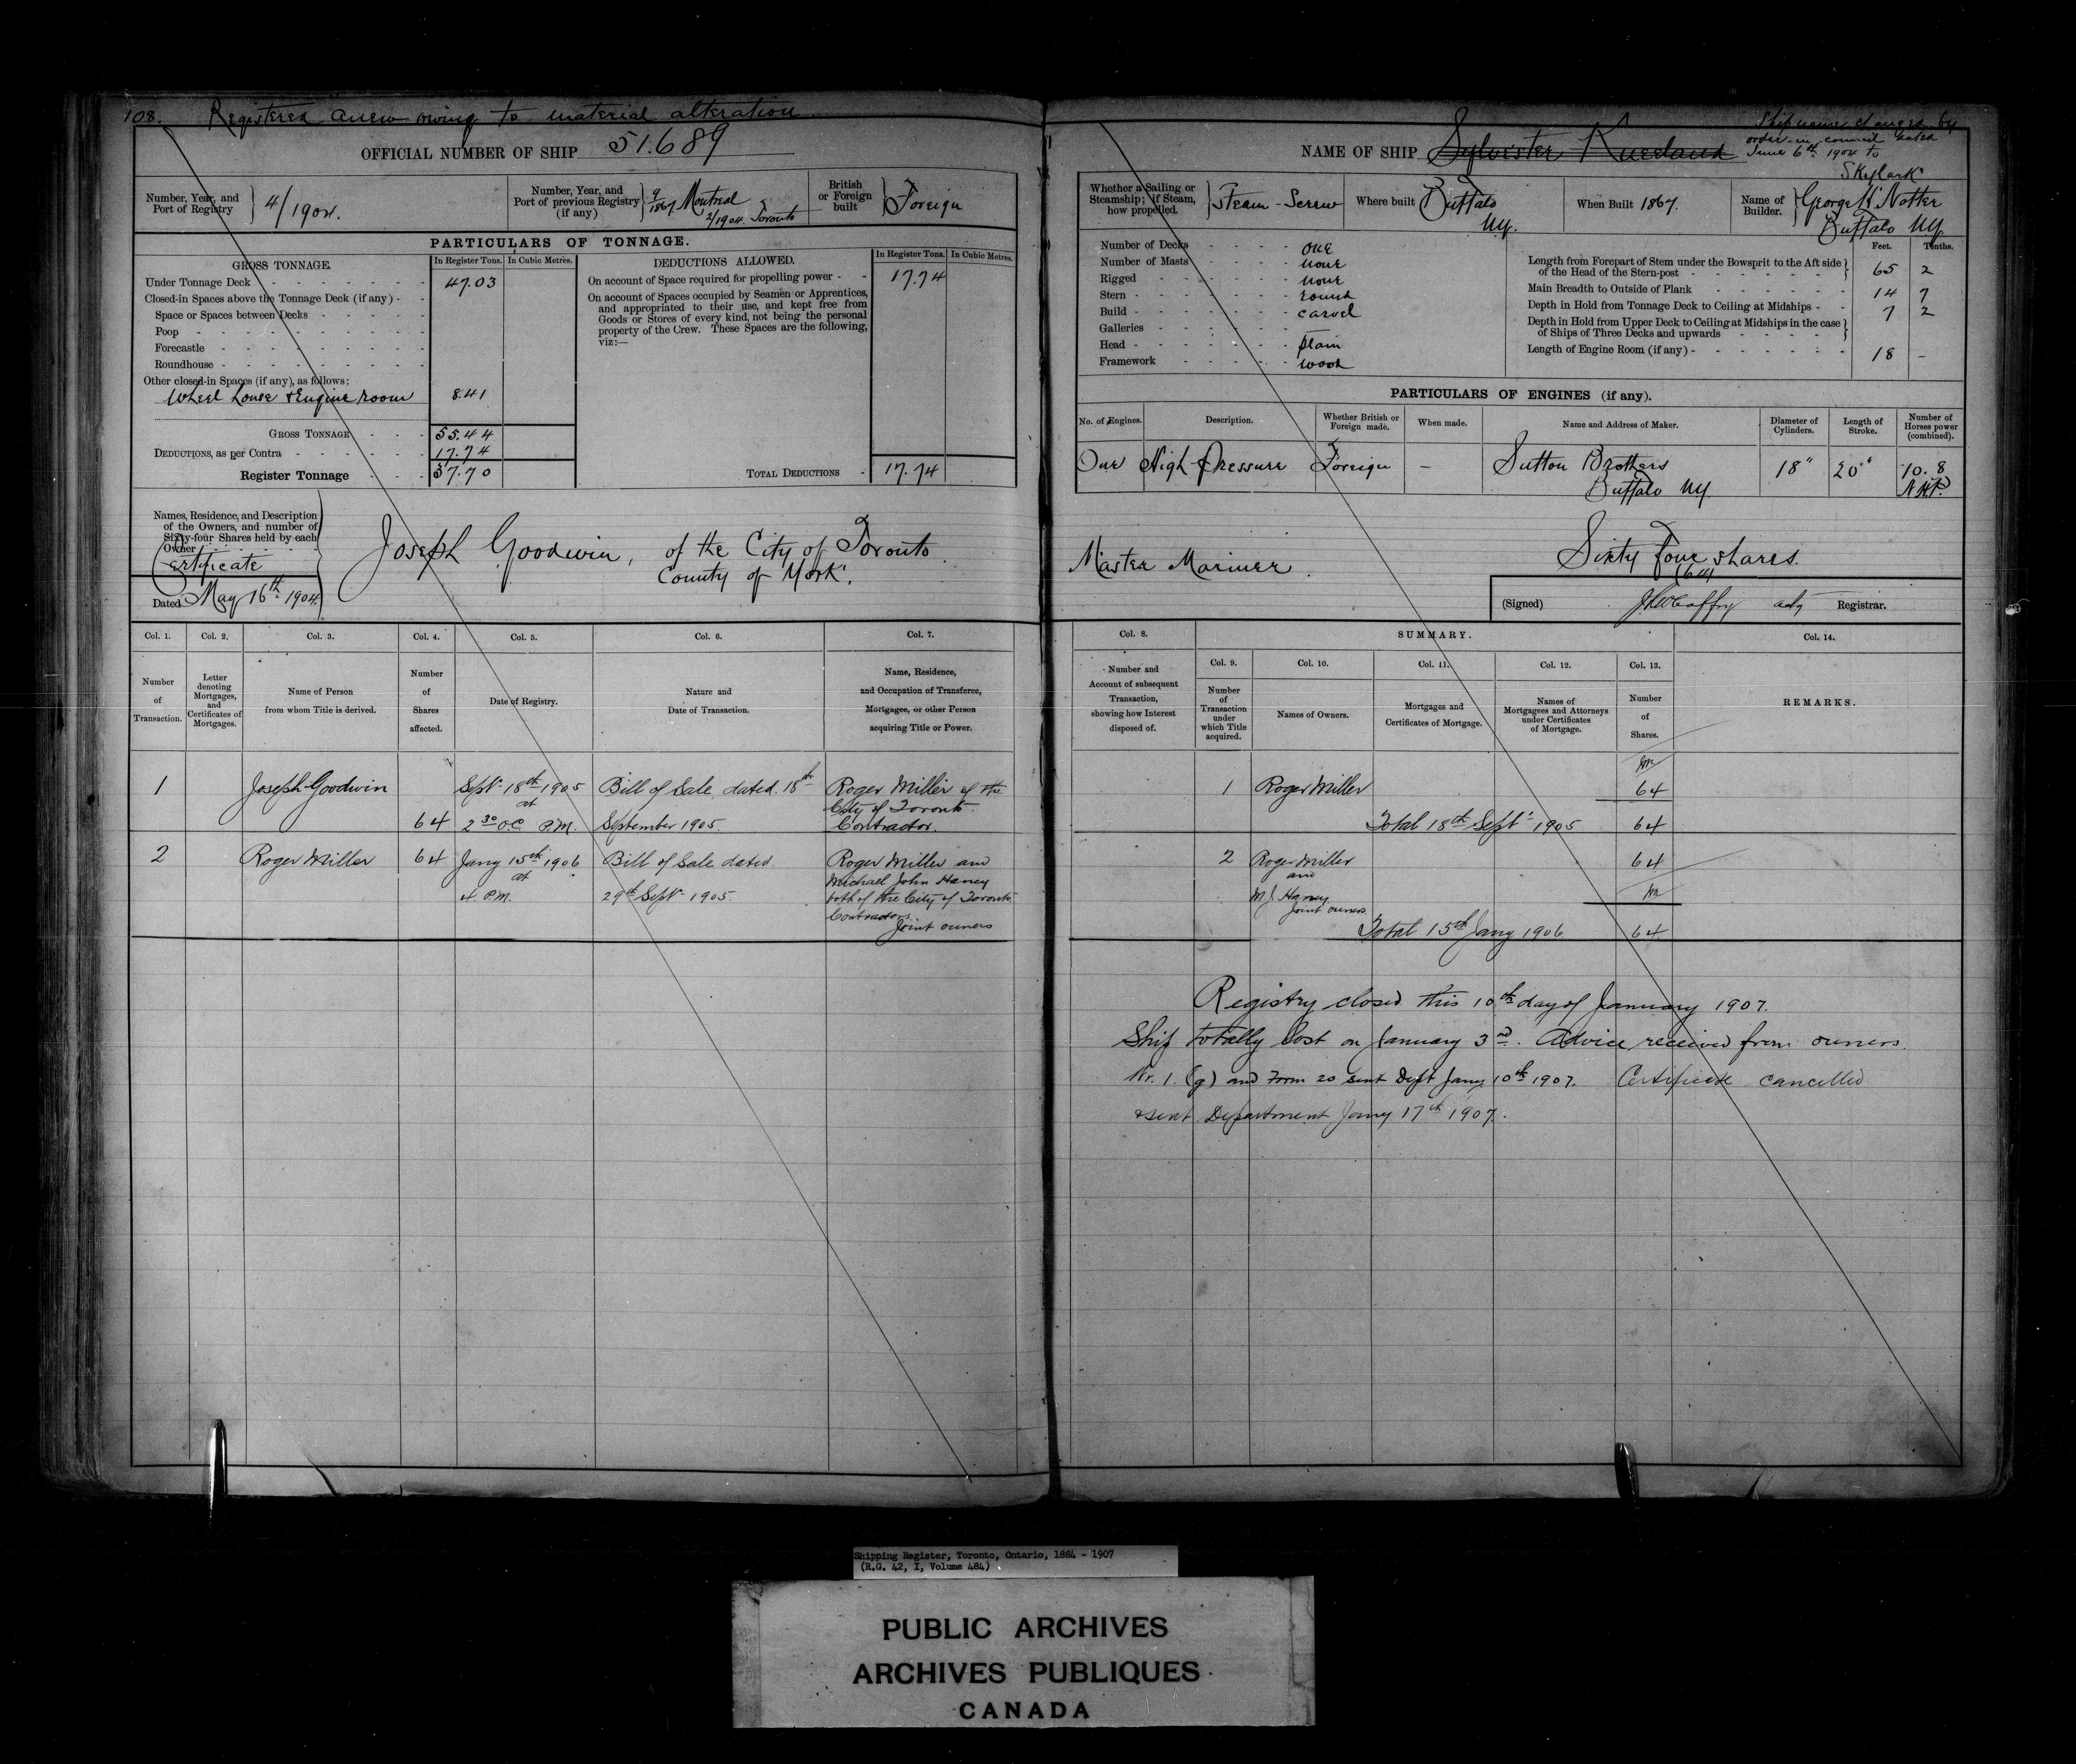 108. Registered anew owing to material alteration
OFFICIAL NUMBER OF SHIP 51.689
Number, Year, and Port of Registry } 4/1904.
Number, Year, and Port of previous Registry (if any) } 9/1867 Montreal 2/1904 Toronto
British or Foreign built } Foreign
PARTICULARS OF TONNAGE.
GROSS TONNAGE. In Register Tons. In Cubic Metres.
Under Tonnage Deck 47.03
Closed-in Spaces above the Tonnage Deck (if any)
Space or Spaces between Decks
Poop
Forecastle
Roundhouse
Other closed-in Spaces (if any), as follows:
Wheel house & Engine room 8.41
GROSS TONNAGE 55.44
DEDUCTIONS, as per Contra 17.74
Register Tonnage 37.70
DEDUCTIONS ALLOWED. In Register Tons. In Cubic Metres.
On account of Space required for propelling power - - 17.74
On account of Spaces occupied by Seamen or Apprentices,
and appropriated to their use, and kept free from
Goods or Stores of every kind, not being the personal
property of the Crew. These Spaces are the following,
viz:—
TOTAL DEDUCTIONS - 17.74
Names, Residence, and Description
of the Owners, and number of
Sixty-four Shares held by each
Owner
Certificate
Dated May 16th 1904.
Joseph Goodwin, of the City of Toronto
County of York.
Col. 1. Col. 2. Col. 3. Col. 4. Col. 5. Col. 6. Col. 7.
Number of Transaction.
Letter denoting Mortgages, and Certificates of Mortgages.
Name of Person from whom Title is derived.
Number of Shares affected.
Date of Registry.
Nature and Date of Transaction.
Name, Residence, and Occupation of Transferee, Mortgagee, or other Person acquiring Title or Power.
1 Joseph Goodwin 64 Sept 18th 1905 at 2 30 O.C. P.M. Bill of Sale dated 18th September 1905. Roger Miller of the City of Toronto Contractor.
2 Roger Miller 64 Jany 15th 1906 at 4. P.M. Bill of Sale dated 29th Sept 1905. Roger Miller and Michael John Haney both of the City of Toronto Contractors. Joint owners
NAME OF SHIP Sylvester Kneeland
Ship name changed by
order-in-council dated
June 6th 1904 to
Skylark
Whether a Sailing or Steamship; if Steam, how propelled. } Steam-Screw
Where built Buffalo N.Y.
When Built 1867.
Name of Builder. } George H Notter Buffalo N.Y.
Number of Decks - - - - one
Number of Masts - - - - none
Rigged - - - - none
Stern - - - - round
Build - - - - carvel
Galleries - - - -
Head - - - - plain
Framework - - - - wood
Feet. Tenths.
Length from Forepart of Stem under the Bowsprit to the Aft side of the Head of the Stern-post } 65 2
Main Breadth to Outside of Plank 14 7
Depth in Hold from Tonnage Deck to Ceiling at Midships 7 2
Depth in Hold from Upper Deck to Ceiling at Midships in the case of Ships of Three Decks and upwards }
Length of Engine Room (if any) 18 –
PARTICULARS OF ENGINES (if any).
No. of Engines. Description. Whether British or Foreign made. When made. Name and Address of Maker. Diameter of Cylinders. Length of Stroke. Number of Horses power (combined).
One High Pressure Foreign — Sutton Brothers Buffalo N.Y. 18" 20" 10.8 N.H.P.
Master Mariner.
Sixty four shares.
(64)
(Signed) adg Registrar.
Col. 8. SUMMARY. Col. 14.
Col. 9. Col. 10. Col. 11. Col. 12. Col. 13.
Number and Account of subsequent Transaction, showing how Interest disposed of.
Number of Transaction under which Title acquired.
Names of Owners.
Mortgages and Certificates of Mortgage.
Names of Mortgagees and Attorneys under Certificates of Mortgage.
Number of Shares.
REMARKS.
1 Roger Miller 64
Total 18th Sept 1905 64
2 Roger Miller and M J Haney Joint owners 64
Total 15th Jany 1906 64
Registry closed this 10th day of January 1907.
Ship totally lost on January 3rd. Advice received from owners.
Nr. 1. (g) and Form 20 sent Dept Jany 10th 1907. Certificate cancelled
& sent Department Jany 17th 1907.
Shipping Register, Toronto, Ontario, 1884 - 1907
(R.G. 42, I, Volume 484)
PUBLIC ARCHIVES
ARCHIVES PUBLIQUES
CANADA